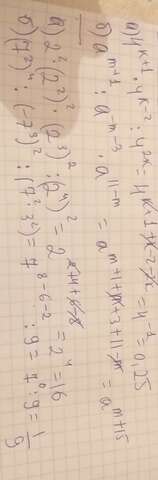 а) 4^{k+1} · 4^{k-2} : 4^{2k} = 4^{k+1+k-2-2k} = 4^{-1} = 0,25
б) a^{m+1} : a^{-m-3} · a^{11-m} = a^{m+1+m+3+11-m} = a^{m+15}
а) 2² · (2²)² · (2³)² : (2⁴)² = 2^{2+4+6-8} = 2⁴ = 16
б) (7²)⁴ : (-7³)² : (7² · 3²) = 7^{8-6-2} : 9 = 7⁰ : 9 = 1/9